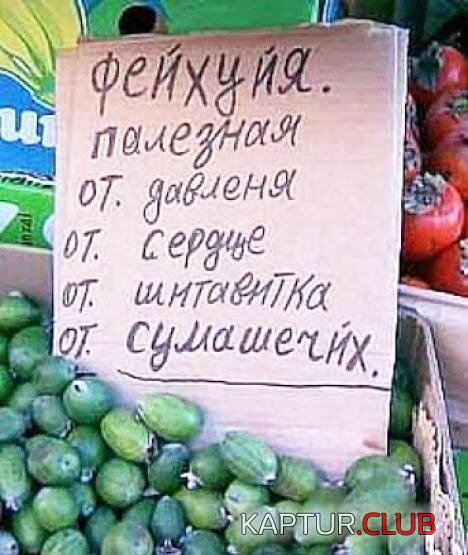 фейхуйя.
палезная
от. давленя
от. сердце
от. шитавитка
от. сумашечйх.
KAPTUR.CLUB